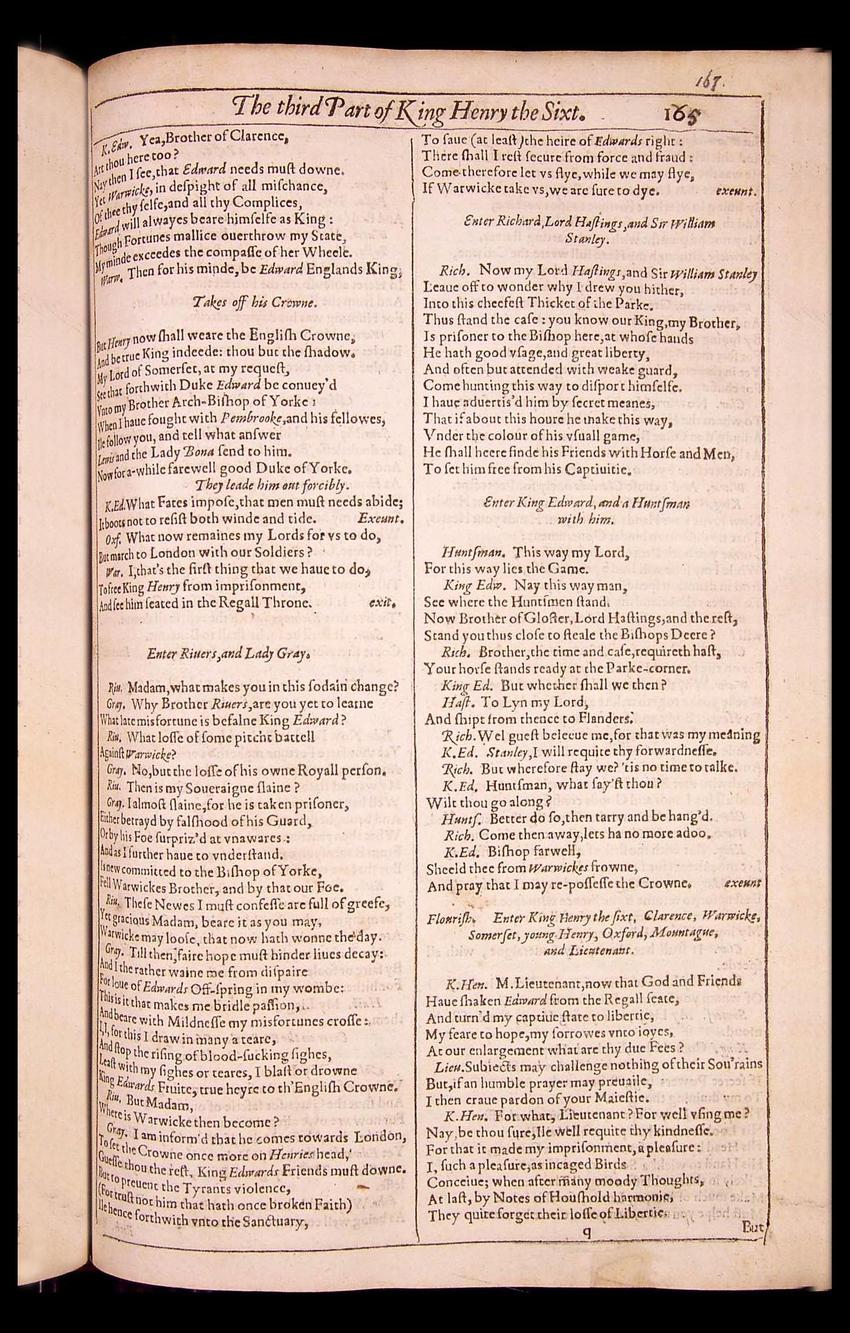 167.
The third Part of King Henry the Sixt. 165
K.Edw. Yea,Brother of Clarence,
Art thou here too?
Nay then I ſee,that Edward needs muſt downe.
Yet Warwicke, in deſpight of all miſchance,
Of thee thy ſelfe,and all thy Complices,
Edward will alwayes beare himſelfe as King :
Though Fortunes mallice ouerthrow my State,
My minde exceedes the compaſſe of her Wheele.
Warw. Then for his minde,be Edward Englands King,
Takes off his Crowne.
But Henry now ſhall weare the Engliſh Crowne,
And be true King indeede: thou but the ſhadow.
My Lord of Somerſet, at my requeſt,
See that forthwith Duke Edward be conuey'd
Vnto my Brother Arch-Biſhop of Yorke :
When I haue fought with Pembrooke,and his fellowes,
Ile follow you, and tell what anſwer
Lewis and the Lady Bona ſend to him.
Now for a-while farewell good Duke of Yorke.
They leade him out forcibly.
K.Ed.What Fates impoſe,that men muſt needs abide;
It boots not to reſiſt both winde and tide. Exeunt.
Oxf. What now remaines my Lords for vs to do,
But march to London with our Soldiers ?
War. I,that's the firſt thing that we haue to do,
To free King Henry from impriſonment,
And ſee him ſeated in the Regall Throne. exit.
Enter Riuers,and Lady Gray.
Riu. Madam,what makes you in this ſodain change?
Gray. Why Brother Riuers,are you yet to learne
What late misfortune is befalne King Edward ?
Riu. What loſſe of ſome pitcht battell
Againſt Warwicke?
Gray. No,but the loſſe of his owne Royall perſon.
Riu. Then is my Soueraigne ſlaine ?
Gray. I almoſt ſlaine,for he is taken priſoner,
Either betrayd by falſhood of his Guard,
Or by his Foe ſurpriz'd at vnawares :
And as I further haue to vnderſtand,
Is new committed to the Biſhop of Yorke,
Fell Warwickes Brother, and by that our Foe.
Riu. Theſe Newes I muſt confeſſe are full of greefe,
Yet gracious Madam, beare it as you may,
Warwicke may looſe, that now hath wonne the day.
Gray. Till then,faire hope muſt hinder liues decay:
And I the rather waine me from diſpaire
For loue of Edwards Off-ſpring in my wombe:
This is it that makes me bridle paſſion,
And beare with Mildneſſe my misfortunes croſſe :
I,I, for this I draw in many a teare,
And ſtop the riſing of blood-ſucking ſighes,
Leaſt with my ſighes or teares, I blaſt or drowne
King Edwards Fruite, true heyre to th'Engliſh Crowne.
Riu. But Madam,
Where is Warwicke then become ?
Gray. I am inform'd that he comes towards London,
To ſet the Crowne once more on Henries head,
Gueſſe thou the reſt, King Edwards Friends muſt downe.
But to preuent the Tyrants violence,
(For truſt not him that hath once broken Faith)
Ile hence forthwith vnto the Sanctuary,
To ſaue (at leaſt)the heire of Edwards right :
There ſhall I reſt ſecure from force and fraud :
Come therefore let vs flye,while we may flye,
If Warwicke take vs,we are ſure to dye. exeunt.
Enter Richard,Lord Haſtings,and Sir William
Stanley.
Rich. Now my Lord Haſtings,and Sir William Stanley
Leaue off to wonder why I drew you hither,
Into this cheefeſt Thicket of the Parke.
Thus ſtand the caſe : you know our King,my Brother,
Is priſoner to the Biſhop here,at whoſe hands
He hath good vſage,and great liberty,
And often but attended with weake guard,
Come hunting this way to diſport himſelfe.
I haue aduertis'd him by ſecret meanes,
That if about this houre he make this way,
Vnder the colour of his vſuall game,
He ſhall heere finde his Friends with Horſe and Men,
To ſet him free from his Captiuitie.
Enter King Edward, and a Huntſman
with him.
Huntſman. This way my Lord,
For this way lies the Game.
King Edw. Nay this way man,
See where the Huntſmen ſtand.
Now Brother of Gloſter,Lord Haſtings,and the reſt,
Stand you thus cloſe to ſteale the Biſhops Deere ?
Rich. Brother,the time and caſe,requireth haſt,
Your horſe ſtands ready at the Parke-corner.
King Ed. But whether ſhall we then ?
Haſt. To Lyn my Lord,
And ſhipt from thence to Flanders.
Rich.Wel gueſt beleeue me,for that was my meaning
K.Ed. Stanley,I will requite thy forwardneſſe.
Rich. But wherefore ſtay we? 'tis no time to talke.
K.Ed. Huntſman, what ſay'ſt thou ?
Wilt thou go along ?
Huntſ. Better do ſo,then tarry and be hang'd.
Rich. Come then away,lets ha no more adoo.
K.Ed. Biſhop farwell,
Sheeld thee from Warwickes frowne,
And pray that I may re-poſſeſſe the Crowne. exeunt
Flouriſh. Enter King Henry the ſixt, Clarence, Warwicke,
Somerſet, young Henry, Oxford, Mountague,
and Lieutenant.
K.Hen. M.Lieutenant,now that God and Friends
Haue ſhaken Edward from the Regall ſeate,
And turn'd my captiue ſtate to libertie,
My feare to hope,my ſorrowes vnto ioyes,
At our enlargement what are thy due Fees ?
Lieu.Subiects may challenge nothing of their Sou'rains
But,if an humble prayer may preuaile,
I then craue pardon of your Maieſtie.
K.Hen. For what, Lieutenant ? For well vſing me ?
Nay, be thou ſure,Ile well requite thy kindneſſe.
For that it made my impriſonment, a pleaſure :
I, ſuch a pleaſure,as incaged Birds
Conceiue; when after many moody Thoughts,
At laſt, by Notes of Houſhold harmonie,
They quite forget their loſſe of Libertie.
q But